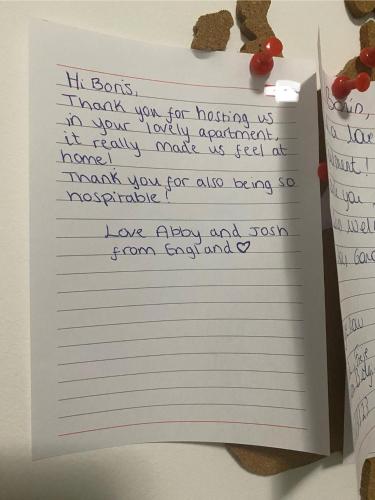 Hi Boris,
Thank you for hosting us
in your lovely apartment,
it really made us feel at
home!
Thank you for also being so
hospirable!
Love Abby and Josh
from England♡